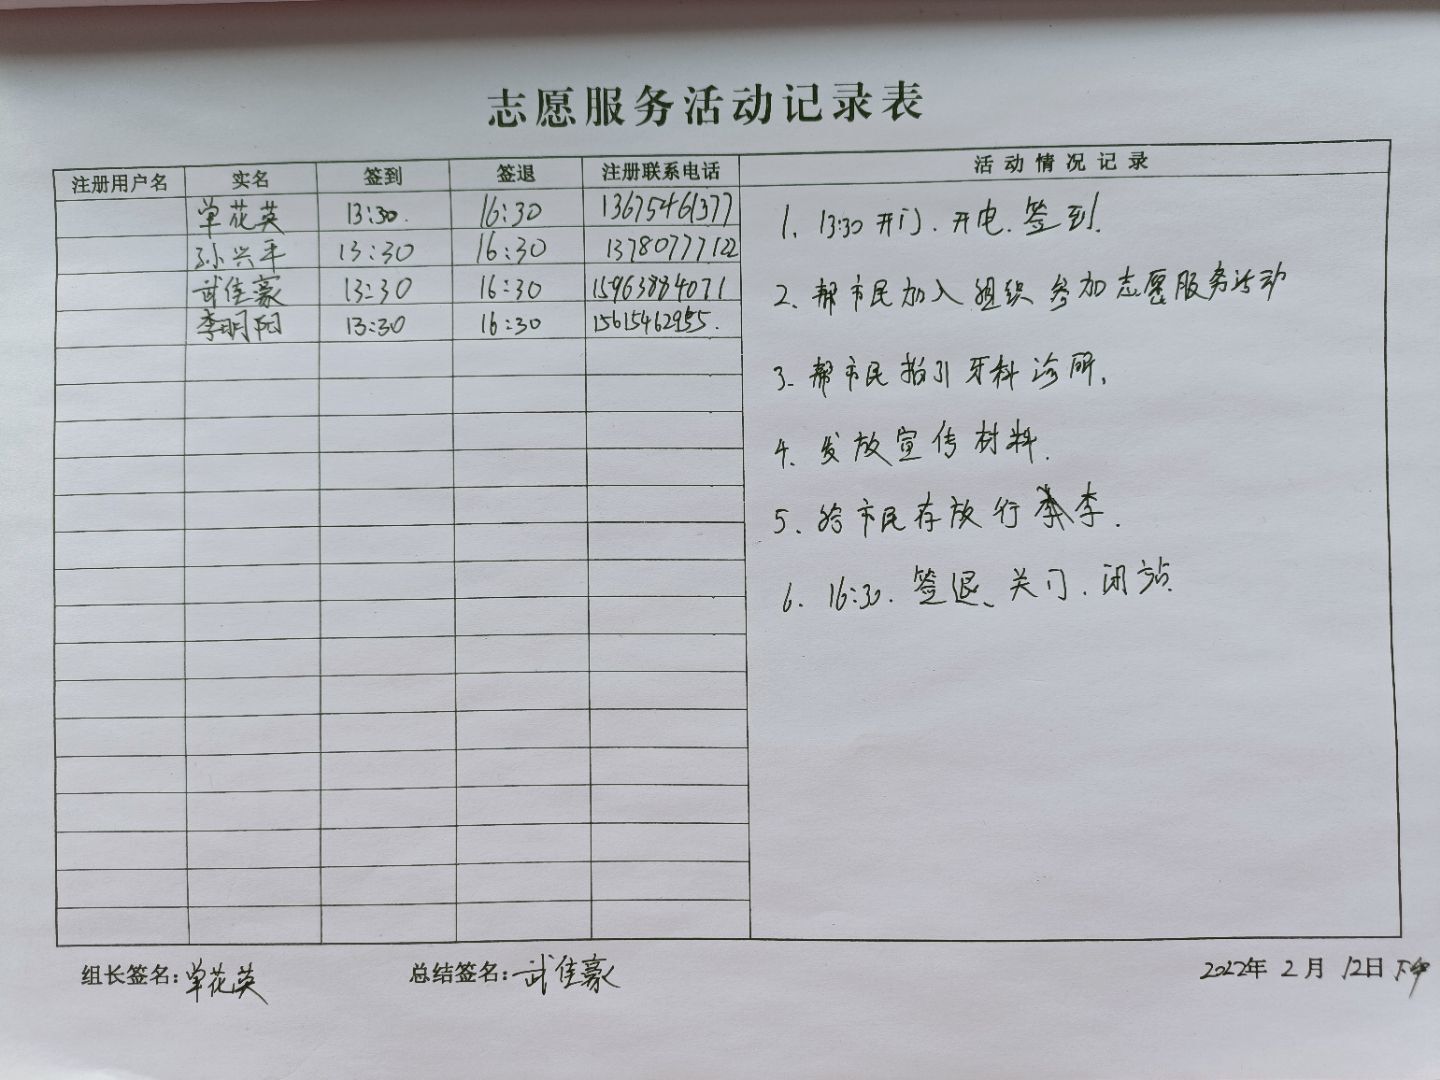 志愿服务活动记录表
注册用户名 实名 签到 签退 注册联系电话 活动情况记录
单花英 13:30. 16:30 13675461377
孙兴平 13:30 16:30 13780777122
武佳豪 13:30 16:30 15963884071
李明阳 13:30 16:30 15615462955.
1. 13:30 开门. 开电. 签到.
2. 帮市民加入组织 参加志愿服务活动
3. 帮市民指引牙科诊所.
4. 发放宣传材料.
5. 给市民存放行李.
6. 16:30. 签退、关门. 闭站.
组长签名:单花英 总结签名:武佳豪 2022年 2 月 12日 下午